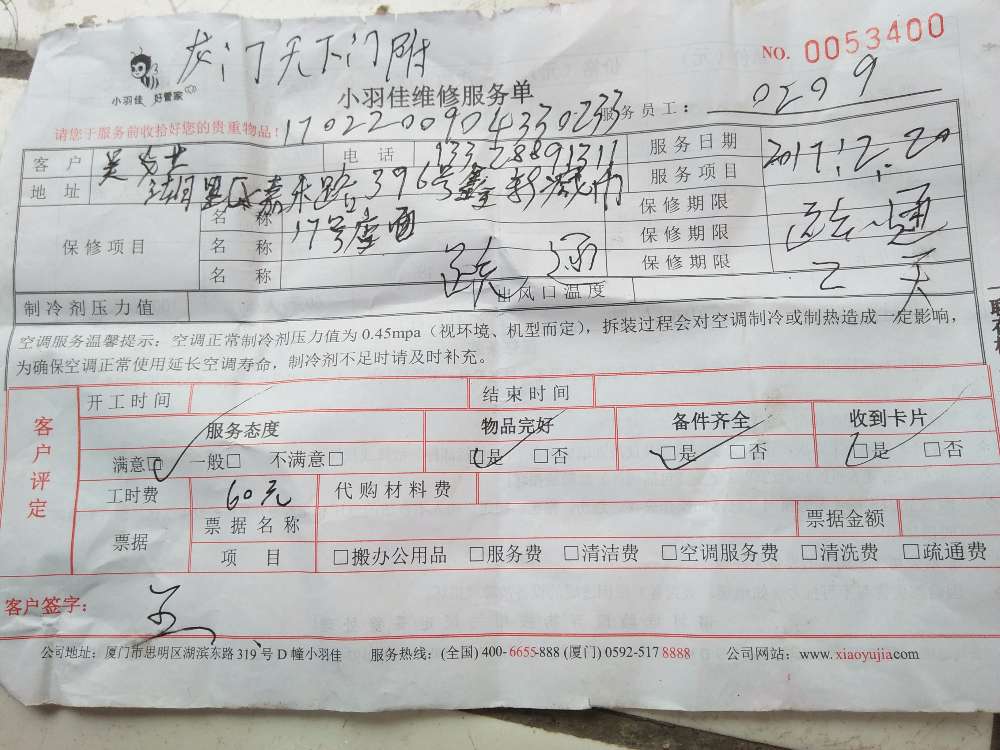 龙门天下门附
NO. 0053400
小羽佳 好管家
小羽佳维修服务单
服务员工: 0209
请您于服务前收拾好您的贵重物品!
1702200904330233
客户 吴女士 电话 13328891311 服务日期 2017.2.20
地址 湖里区嘉禾路396号鑫新城 服务项目
17号店面
保修项目 名称 保修期限
名称 疏通 保修期限 疏通
名称 保修期限 2天
制冷剂压力值 出风口温度
空调服务温馨提示:空调正常制冷剂压力值为 0.45mpa(视环境、机型而定),拆装过程会对空调制冷或制热造成一定影响,
为确保空调正常使用延长空调寿命,制冷剂不足时请及时补充。
客户评定
开工时间 结束时间
服务态度 物品完好 备件齐全 收到卡片
满意□ 一般□ 不满意□ □是 □否 □是 □否 □是 □否
工时费 60元 代购材料费
票据 票据名称 票据金额
项目 □搬办公用品 □服务费 □清洁费 □空调服务费 □清洗费 □疏通费
客户签字:
公司地址:厦门市思明区湖滨东路 319 号 D 幢小羽佳 服务热线:(全国) 400-6655-888 (厦门) 0592-517 8888 公司网站:www.xiaoyujia.com